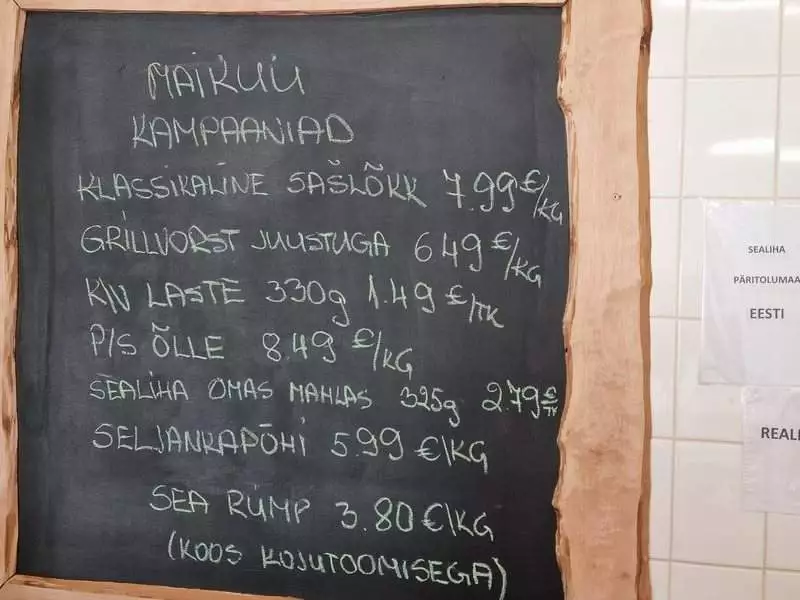 MAIKUU
KAMPAANIAD
KLASSIKALINE ŠAŠLÕKK 7.99 €/KG
GRILLVORST JUUSTUGA 6.49 €/KG
KN LASTE 330g 1.49 €/TK
P/S ÕLLE 8.49 €/KG
SEALIHA OMAS MAHLAS 325g 2.79 €/TK
SELJANKAPÕHI 5.99 €/KG
SEA RÜMP 3.80 €/KG
(KOOS KOJUTOOMISEGA)
SEALIHA
PÄRITOLUMAA
EESTI